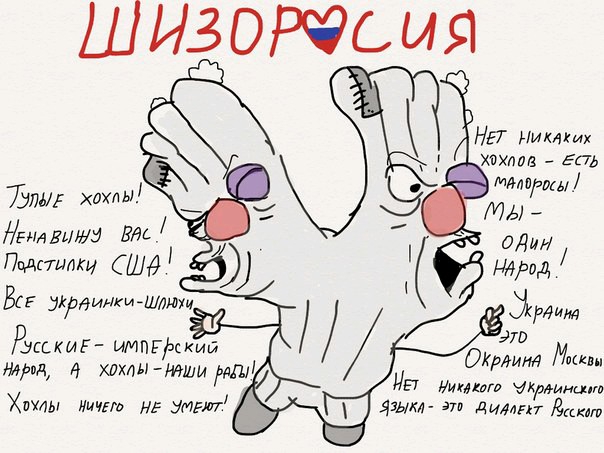 ШИЗОРОСИЯ
Тупые хохлы!
Ненавижу вас!
Подстилки США!
Все украинки-шлюхи
Русские-имперский
народ, а хохлы-наши рабы!
Хохлы ничего не умеют!
Нет никаких
хохлов - есть
малоросы!
Мы -
один
народ!
Украина
это
Окраина Москвы
Нет никакого украинского
языка-это диалект русского